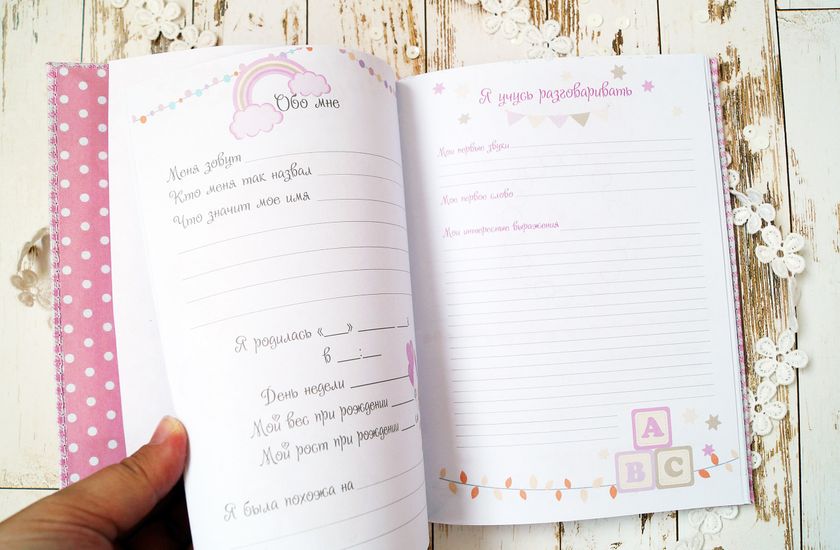 Обо мне
Меня зовут
Кто меня так назвал
Что значит мое имя
Я родилась «___» ______ __ г.
в ___:___
День недели
Мой вес при рождении
Мой рост при рождении
Я была похожа на
Я учусь разговаривать
Мои первые звуки
Мое первое слово
Мои интересные выражения
A
B C